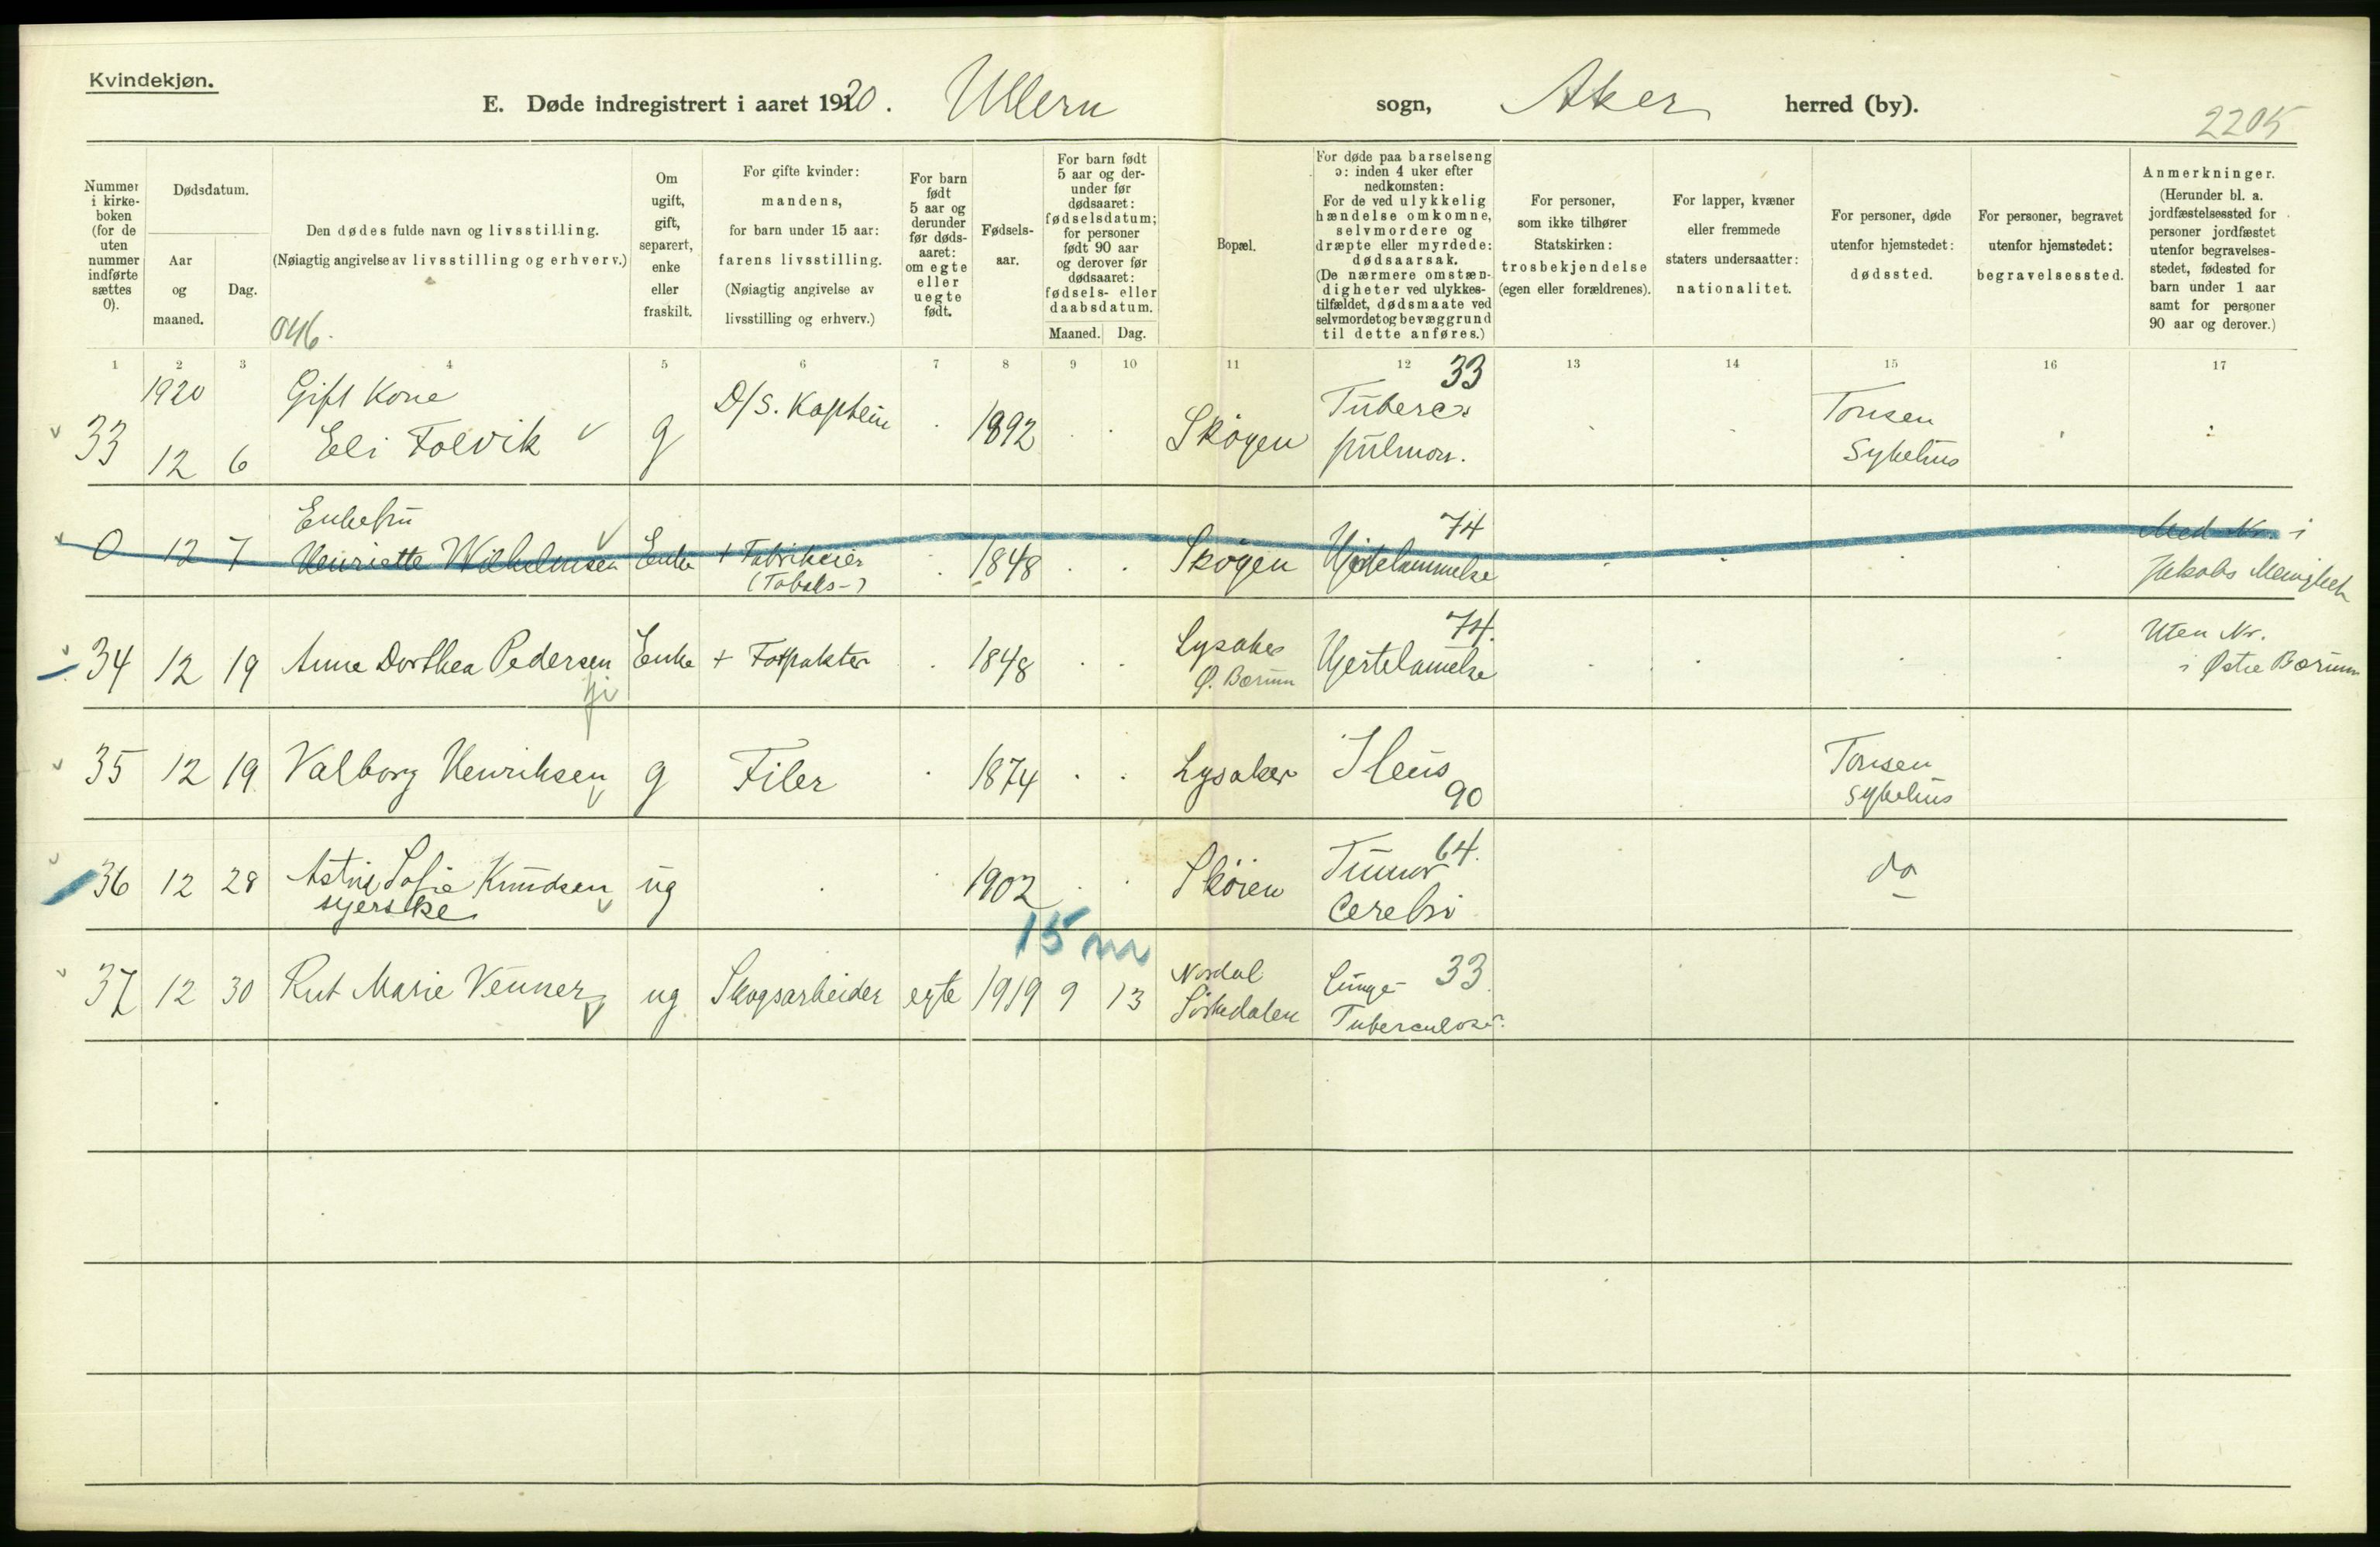 Kvindekjøn.
E. Døde indregistrert i aaret 1920. Ullern sogn, Aker herred (by).
2205
Nummer i kirkeboken (for de uten nummer indførte sættes 0).
Dødsdatum.
Aar og maaned.
Dag.
Den dødes fulde navn og livsstilling.
(Nøiagtig angivelse av livsstilling og erhverv.)
046.
Om ugift, gift, separert, enke eller fraskilt.
For gifte kvinder: mandens, for barn under 15 aar: farens livsstilling. (Nøiagtig angivelse av livsstilling og erhverv.)
For barn født 5 aar og derunder før dødsaaret: om egte eller uegte født.
Fødselsaar.
For barn født 5 aar og derunder før dødsaaret: fødselsdatum; for personer født 90 aar og derover før dødsaaret: fødsels- eller daabsdatum.
Maaned. Dag.
Bopæl.
For døde paa barselseng ɔ: inden 4 uker efter nedkomsten: For de ved ulykkelig hændelse omkomne, selvmordere og dræpte eller myrdede: dødsaarsak. (De nærmere omstændigheter ved ulykkestilfældet, dødsmaate ved selvmordet og bevæggrund til dette anføres.)
For personer, som ikke tilhører Statskirken: trosbekjendelse (egen eller forældrenes).
For lapper, kvæner eller fremmede staters undersaatter: nationalitet.
For personer, døde utenfor hjemstedet: dødssted.
For personer, begravet utenfor hjemstedet: begravelsessted.
Anmerkninger. (Herunder bl. a. jordfæstelsessted for personer jordfæstet utenfor begravelsesstedet, fødested for barn under 1 aar samt for personer 90 aar og derover.)
1 2 3 4 5 6 7 8 9 10 11 12 13 14 15 16 17
1920 Gift Kone D/S. Kaptein 33 Tuberc. Tonsen
33 12 6 Eli Folvik g 1892 Skøyen pulmon. Sykehus
Enkefru 74
0 12 7 Henriette Wilhelmsen Enke + Fabrikeier 1848 Skøyen Hjertelammelse Med Nr. i
(Tobaks-) Jakobs Menighet
74. Uten Nr.
34 12 19 Anne Dorthea Pedersen Enke + Forpakter 1848 Lysaker Hjertelamelse i Østre Bærum
Ø. Bærum
35 12 19 Valborg Henriksen g Filer 1874 Lysaker Ileus Tonsen
90 Sykehus
64.
36 12 28 Sofie Knudsen ug 1902 Skøien Tumor do
syerske Cerebri
15 m
37 12 30 Rut Marie Venner ug Skogsarbeider egte 1919 9 13 Nordal Lunge- 33
Sørkedalen Tuberculose.